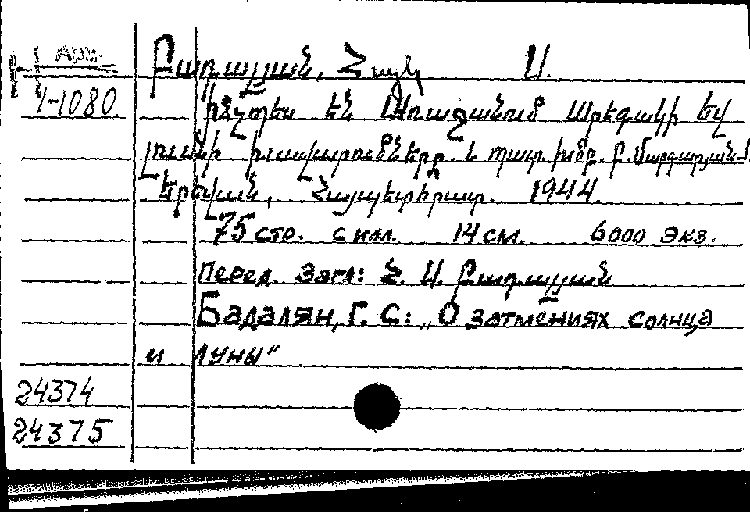 Арм.
4-1080
Բադալյան, Հայկ Ս.
Ինչպես են Առաջանում Արեգակի եվ
լուսնի խավարումները.
Երևան, Հայպետհրատ. 1944
75 стр. с илл. 14 см. 6000 экз.
Перед. Загл: Հ. Ս. Բադալյան
Бадалян, Г. С: „О затмениях солнца
и луны“
24374
24375